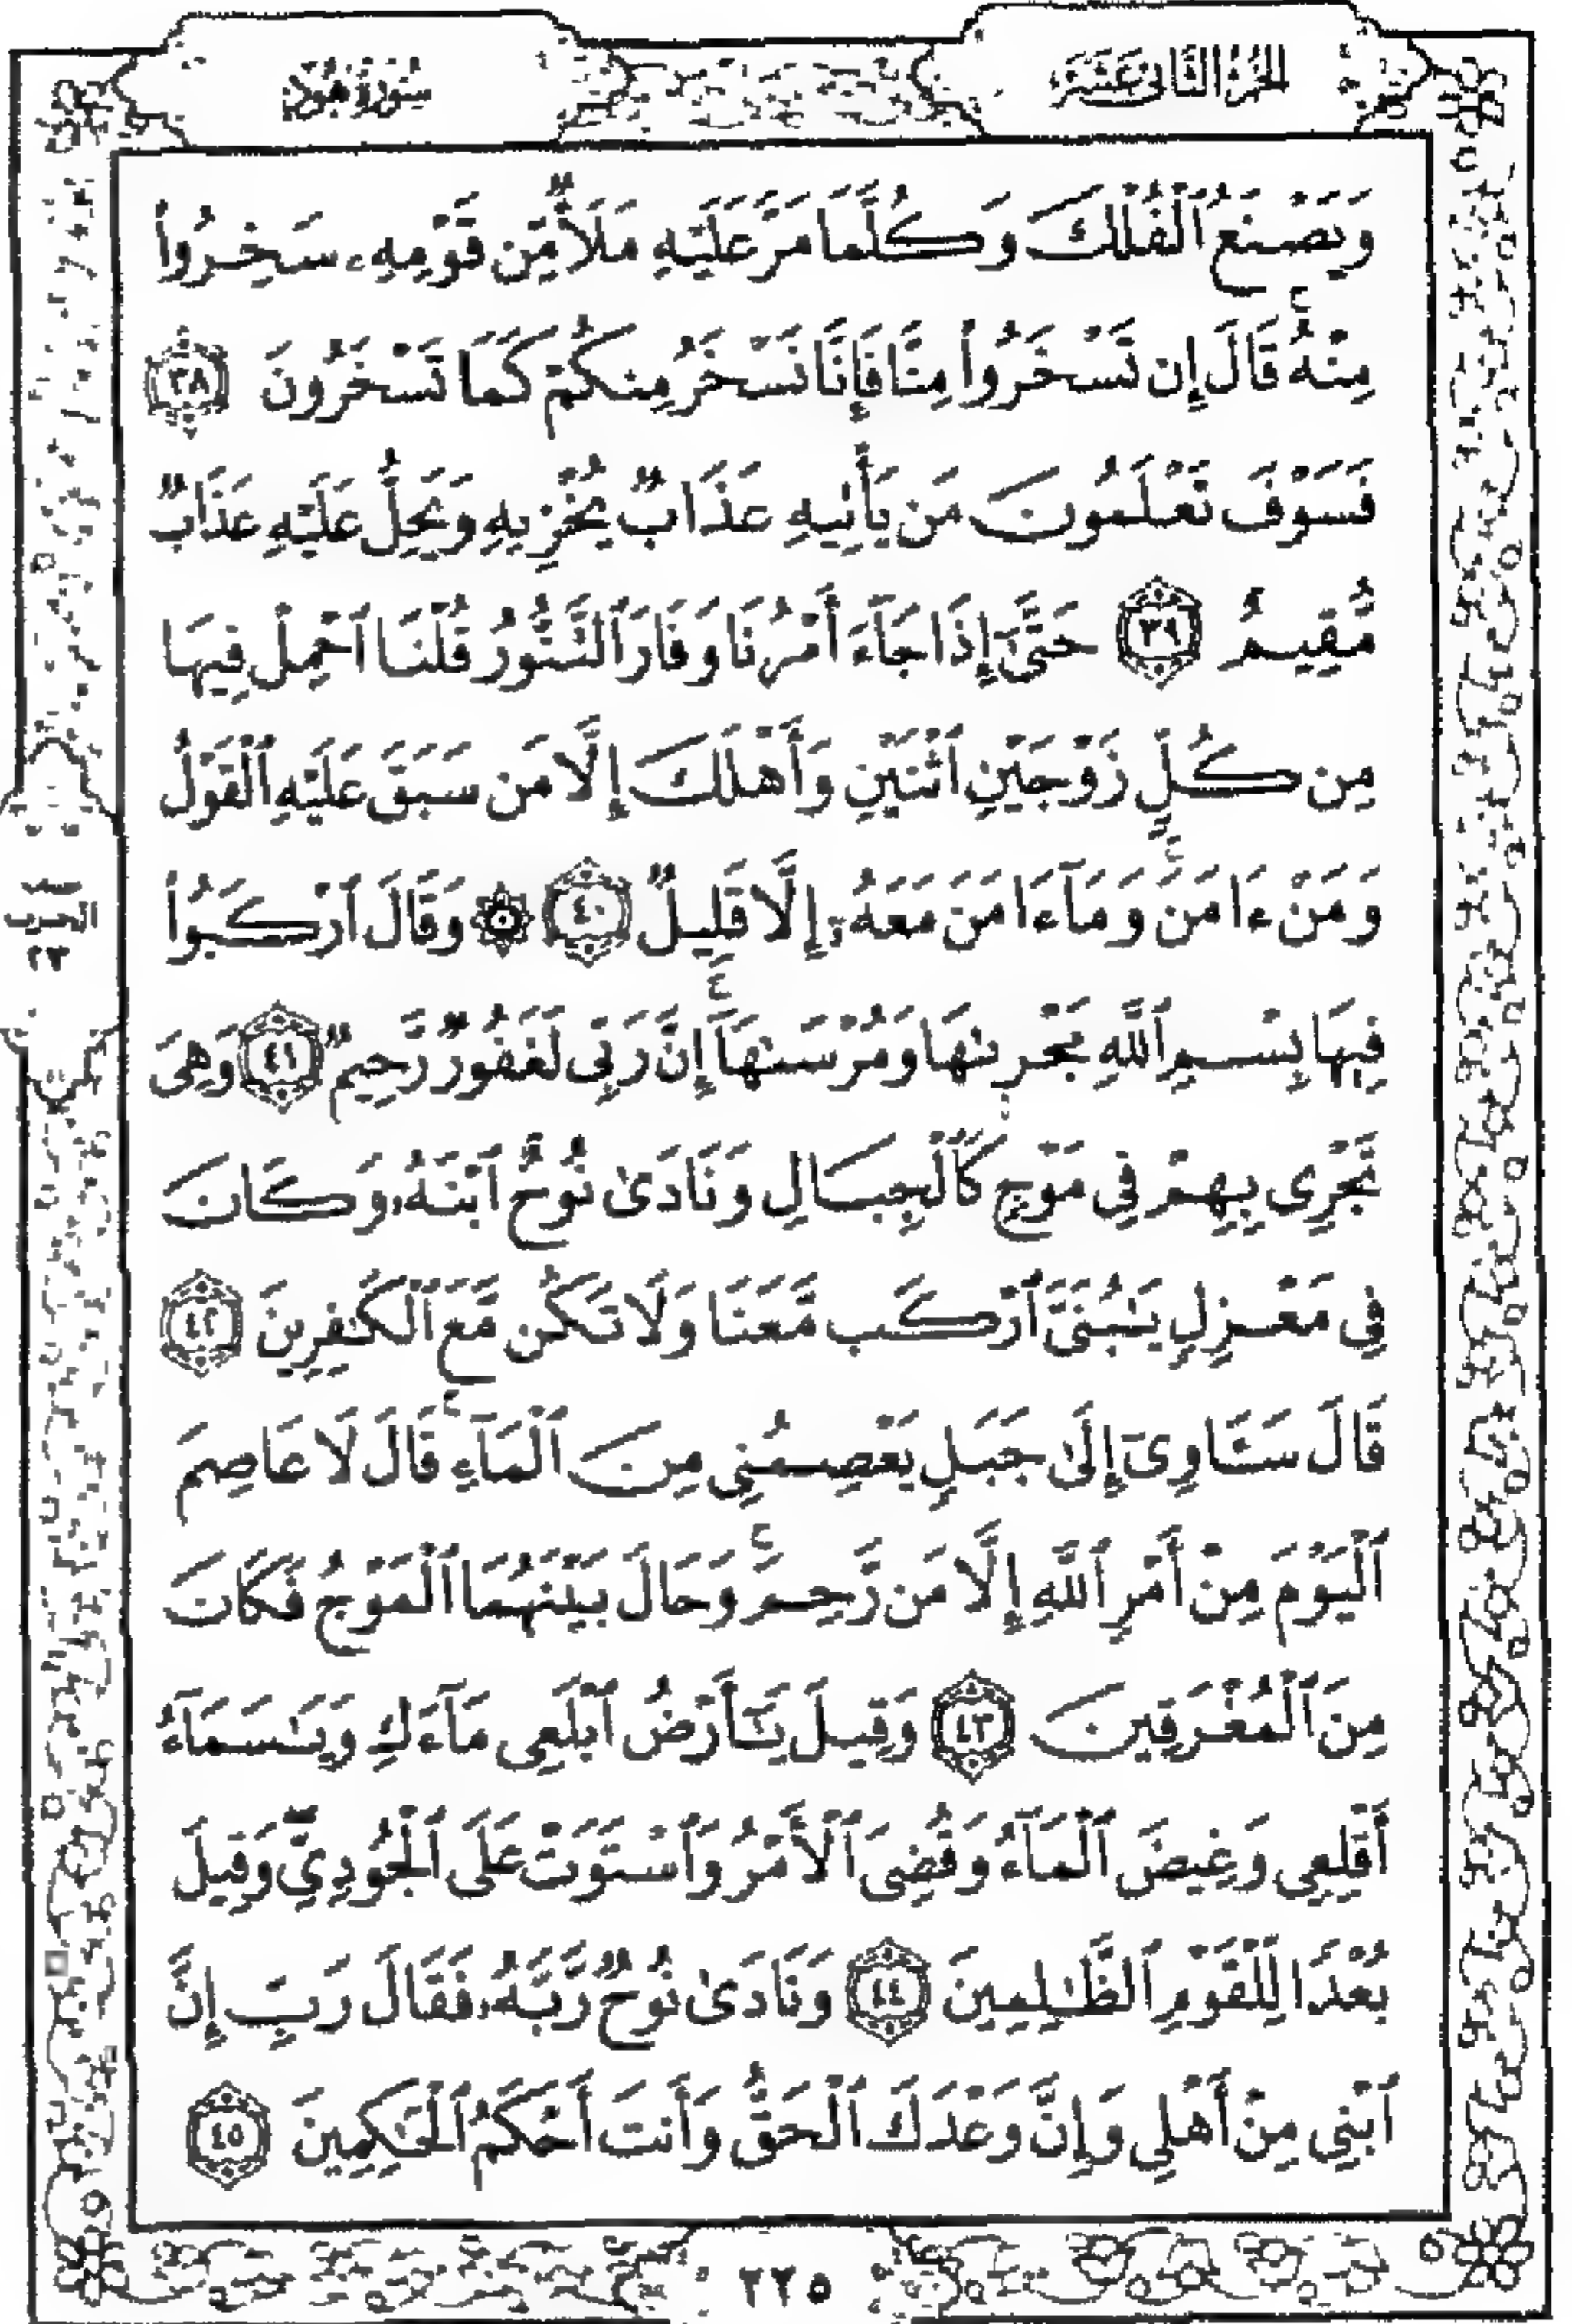 الجزء الثاني عشر
سورة هود
وَيَصْنَعُ ٱلْفُلْكَ وَكُلَّمَا مَرَّ عَلَيْهِ مَلَأٌ مِّن قَوْمِهِۦ سَخِرُوا۟
مِنْهُ ۚ قَالَ إِن تَسْخَرُوا۟ مِنَّا فَإِنَّا نَسْخَرُ مِنكُمْ كَمَا تَسْخَرُونَ ٣٨
فَسَوْفَ تَعْلَمُونَ مَن يَأْتِيهِ عَذَابٌ يُخْزِيهِ وَيَحِلُّ عَلَيْهِ عَذَابٌ
مُّقِيمٌ ٣٩ حَتَّىٰٓ إِذَا جَآءَ أَمْرُنَا وَفَارَ ٱلتَّنُّورُ قُلْنَا ٱحْمِلْ فِيهَا
مِن كُلٍّ زَوْجَيْنِ ٱثْنَيْنِ وَأَهْلَكَ إِلَّا مَن سَبَقَ عَلَيْهِ ٱلْقَوْلُ
وَمَنْ ءَامَنَ ۚ وَمَآ ءَامَنَ مَعَهُۥٓ إِلَّا قَلِيلٌ ٤٠ ۞ وَقَالَ ٱرْكَبُوا۟
فِيهَا بِسْمِ ٱللَّهِ مَجْر۪ىٰهَا وَمُرْسَىٰهَآ ۚ إِنَّ رَبِّى لَغَفُورٌ رَّحِيمٌ ٤١ وَهِىَ
تَجْرِى بِهِمْ فِى مَوْجٍ كَٱلْجِبَالِ وَنَادَىٰ نُوحٌ ٱبْنَهُۥ وَكَانَ
فِى مَعْزِلٍ يَٰبُنَىَّ ٱرْكَب مَّعَنَا وَلَا تَكُن مَّعَ ٱلْكَٰفِرِينَ ٤٢
قَالَ سَـَٔاوِىٓ إِلَىٰ جَبَلٍ يَعْصِمُنِى مِنَ ٱلْمَآءِ ۚ قَالَ لَا عَاصِمَ
ٱلْيَوْمَ مِنْ أَمْرِ ٱللَّهِ إِلَّا مَن رَّحِمَ ۚ وَحَالَ بَيْنَهُمَا ٱلْمَوْجُ فَكَانَ
مِنَ ٱلْمُغْرَقِينَ ٤٣ وَقِيلَ يَٰٓأَرْضُ ٱبْلَعِى مَآءَكِ وَيَٰسَمَآءُ
أَقْلِعِى وَغِيضَ ٱلْمَآءُ وَقُضِىَ ٱلْأَمْرُ وَٱسْتَوَتْ عَلَى ٱلْجُودِىِّ ۖ وَقِيلَ
بُعْدًا لِّلْقَوْمِ ٱلظَّٰلِمِينَ ٤٤ وَنَادَىٰ نُوحٌ رَّبَّهُۥ فَقَالَ رَبِّ إِنَّ
ٱبْنِى مِنْ أَهْلِى وَإِنَّ وَعْدَكَ ٱلْحَقُّ وَأَنتَ أَحْكَمُ ٱلْحَٰكِمِينَ ٤٥
الحزب
٢٣
٢٢٥